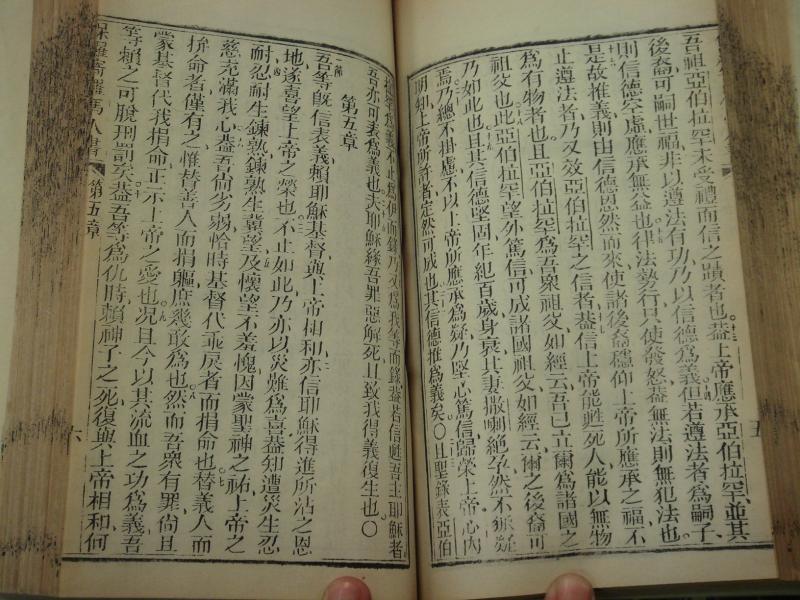 吾祖亞伯拉罕未受禮而信之蹟者也蓋上帝應承亞伯拉罕並其
後裔可嗣世福非以遵法有功乃以信德爲義但若遵法者爲嗣子
則信德空虛應承無益也律法勢行只使發怒蓋無法則無犯法也
是故推義則由信德恩然而來使諸後裔穩仰上帝所應承之福不
止遵法者乃又效亞伯拉罕之信者蓋信上帝能甦死人能以無物
爲有物者也且亞伯拉罕爲吾衆祖父如經云吾已立爾爲諸國之
祖父也此亞伯拉罕望外篤信可成諸國祖父如經云爾之後裔可
乃如此也且其信德堅固年紀百歲身衰其妻撒喇絕孕然不猜疑
焉乃總不掛慮不以上帝所應承爲疑乃堅心篤信歸榮上帝心內
明知上帝所許者定然可成也其信德推爲義矣〇且聖錄表亞伯
爲義不止爲伊而錄乃又爲我等而錄蓋若信甦吾主耶穌者
吾亦可表爲義也夫耶穌緣吾罪惡解死且致我得義復生也〇
第五章
一節 吾等旣信表義賴耶穌基督與上帝相和亦信耶穌得進所沾之恩
地遂喜望上帝之榮也不止如此乃亦以災難爲喜蓋知遭災生忍
耐忍耐生鍊熟鍊熟生冀望及懷望不羞愧因蒙聖神之祐上帝之
慈充滿我心蓋吾尙少弱恰時基督代乖戾者而捐命也替義人而
捹命者僅有之惟替善人而捐軀庶幾敢爲也然而吾衆有罪尙且
蒙基督代我捐命正示上帝之愛也况且今以其流血之功爲義吾
等賴之可脫刑罰矣蓋吾等爲仇時賴神子之死復與上帝相和何
羅馬人書 第五章
五
六